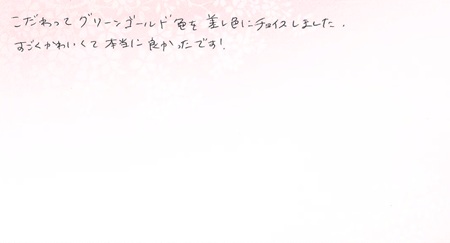 こだわって グリーンゴールド色を 差し色にチョイスしました.
すごくかわいくて 本当に良かったです!